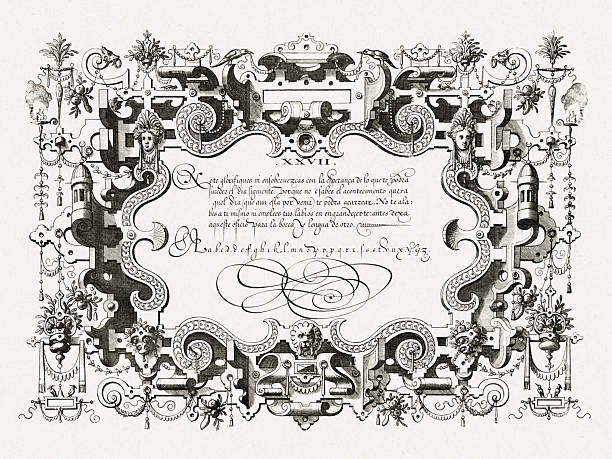 .XXVII.
No te glorifiques ni ensobervezcas con la esperança de lo que te podra
suceder el dia siguiente. Porque no sabes el acontecimento que era
quel dia (que aun esta por venir) te podra acarrear. No te ala-
bes a ti mismo ni empleeo tus labios en engrandecerte: antes dexa
aqueste oficio para la bocca y lengua de otro.
A a b c d e f g h i k l m n o p p q r r s s o s t v u x y z 3.